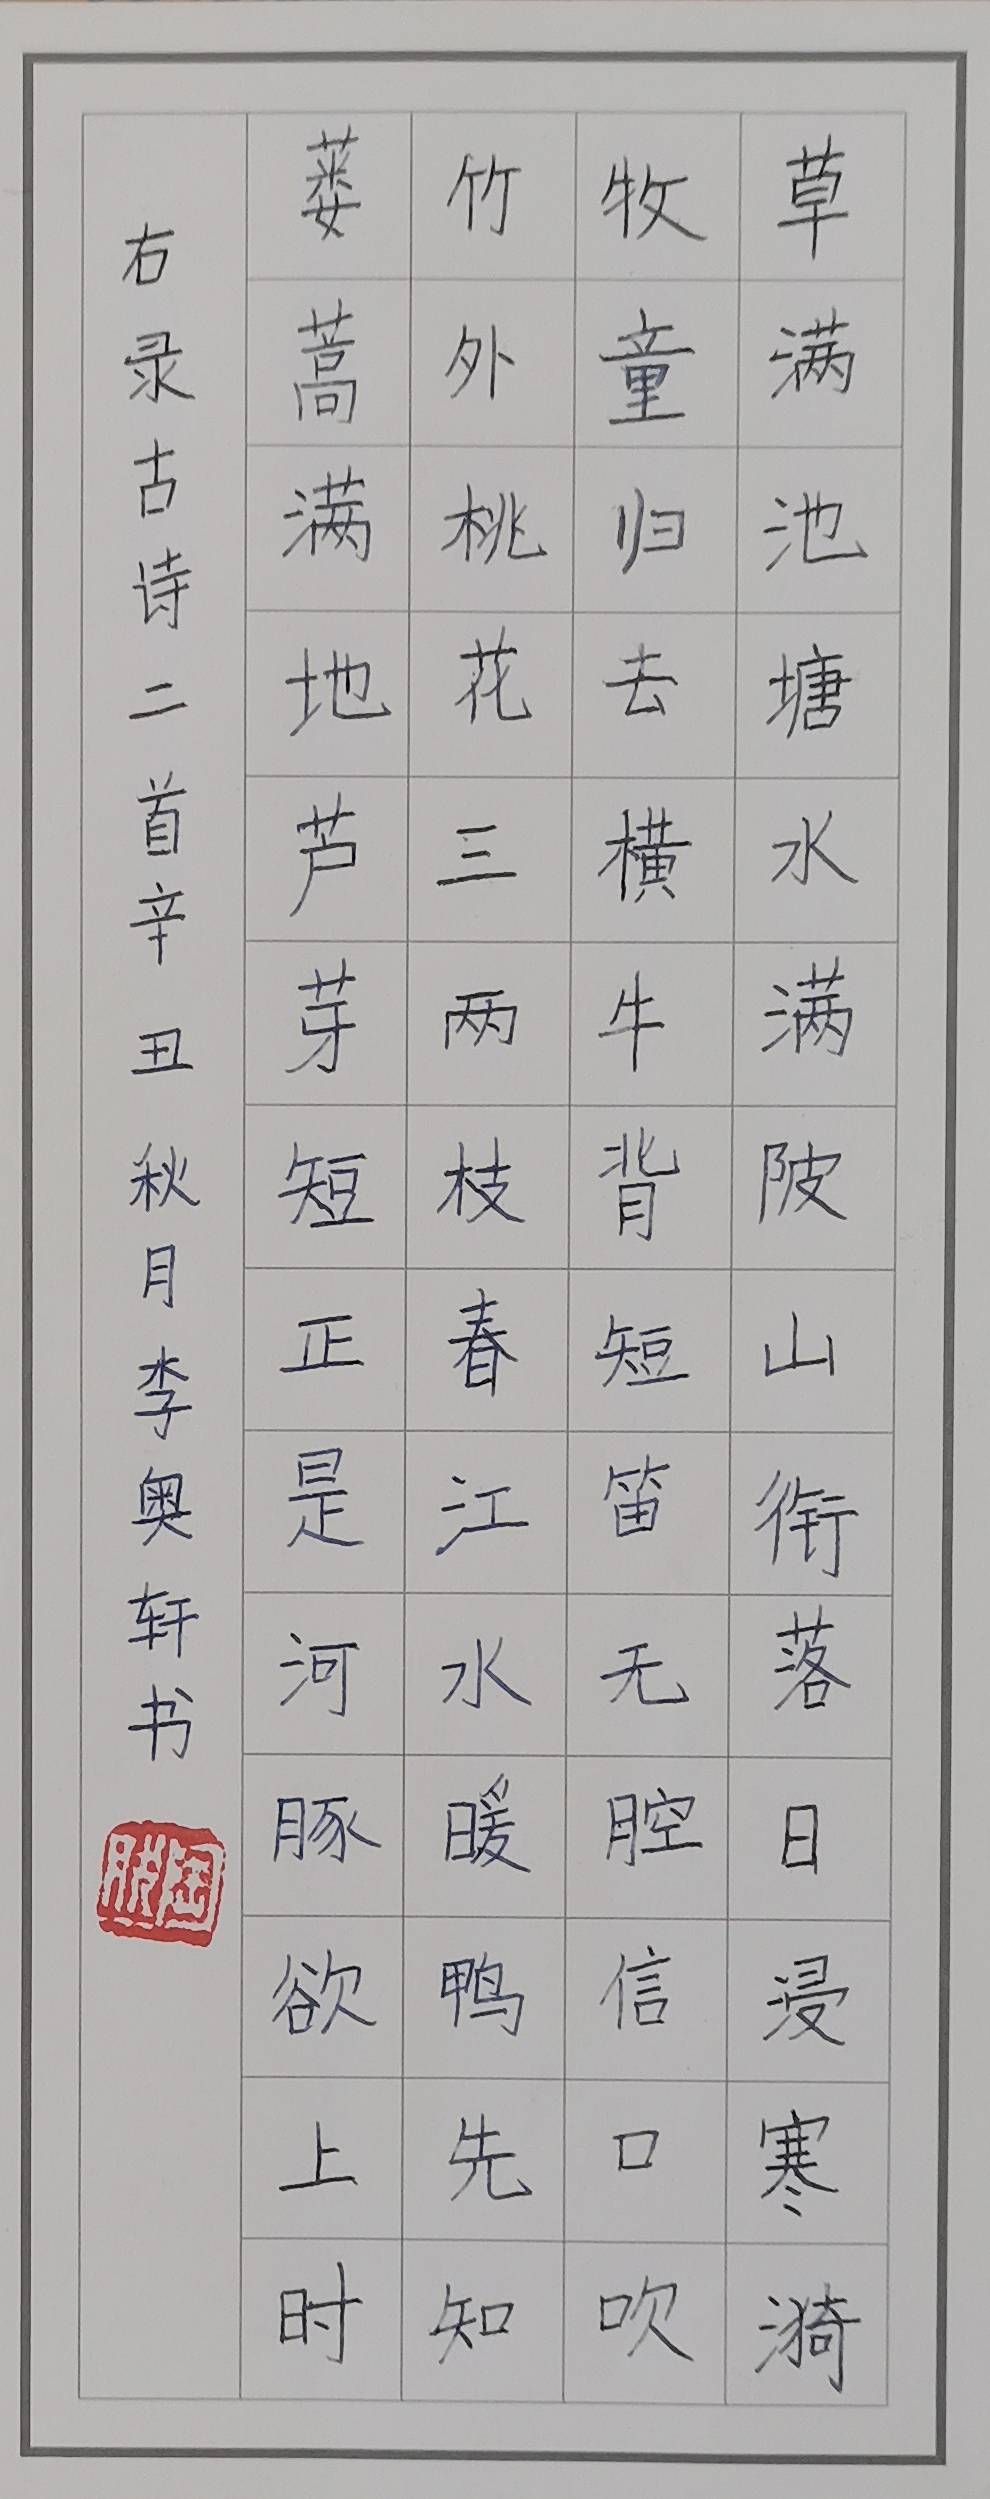 草满池塘水满陂山衔落日浸寒漪
牧童归去横牛背短笛无腔信口吹
竹外桃花三两枝春江水暖鸭先知
蒌蒿满地芦芽短正是河豚欲上时
右录古诗二首辛丑秋月李奥轩书